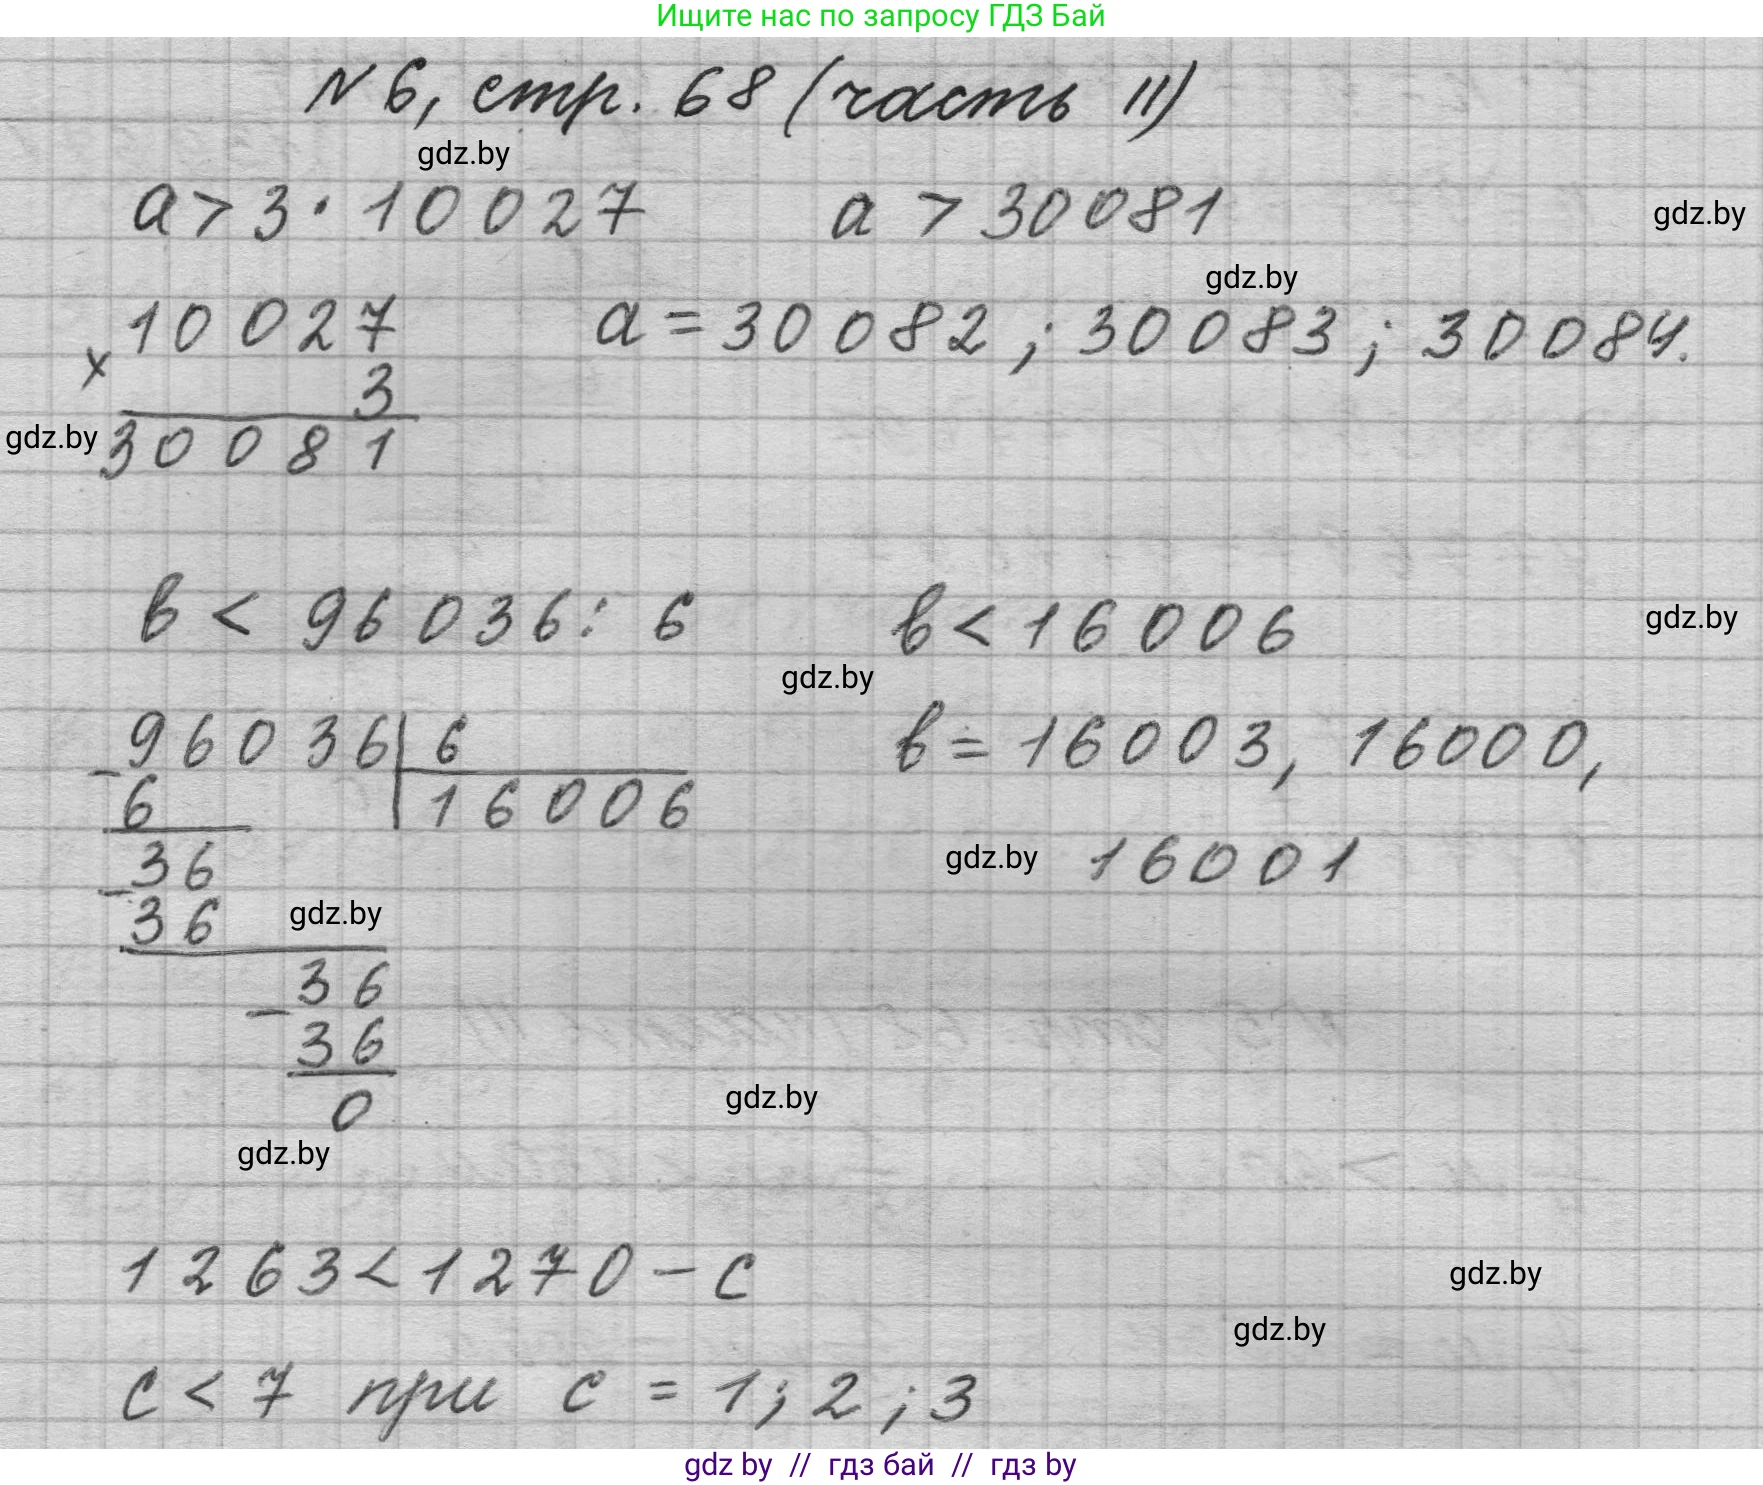 Ищите нас по запросу ГДЗ Бай
N 6, стр. 68 (часть II)
gdz.by
a > 3 · 10027 a > 30081
gdz.by
gdz.by
10027 a = 30082 ; 30083 ; 30084.
x
3
gdz.by
30081
в < 96036 : 6 в < 16006
gdz.by
gdz.by
96036 6 в = 16003, 16000,
- 6 16006
36 gdz.by 16001
- 36 gdz.by
- 36
36
gdz.by
0
gdz.by
1263 < 1270 - c
gdz.by
gdz.by
c < 7 при c = 1 ; 2 ; 3
gdz by // гдз бай // гдз by